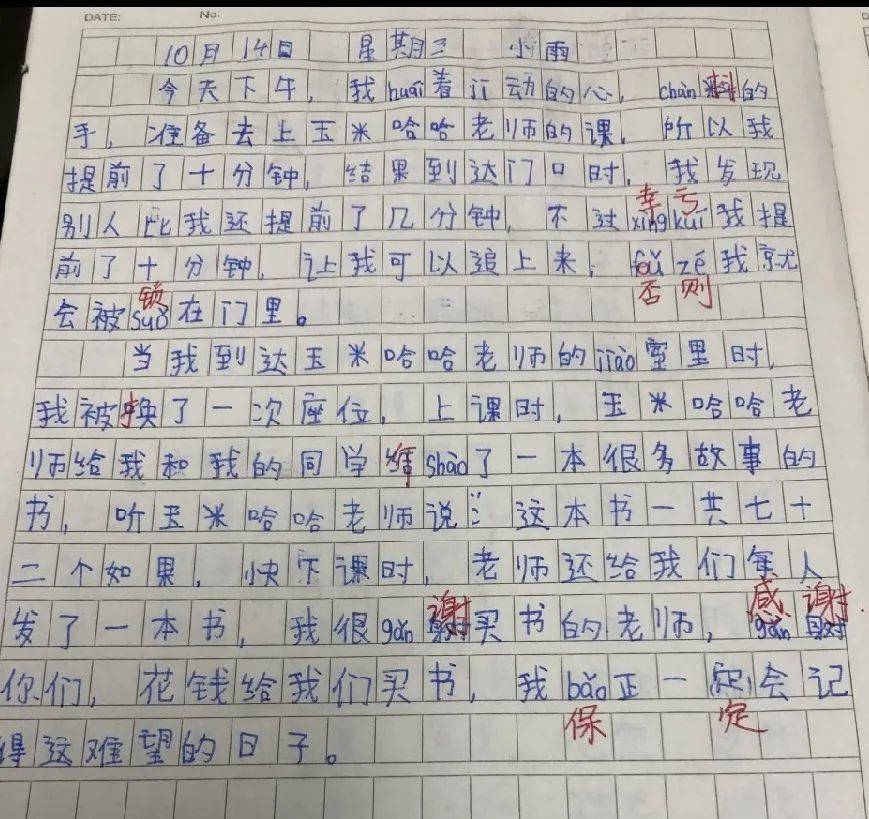 DATE: No.
10月14日 星期三 小雨
今天下午，我huái着jī动的心，chàn抖的
手，准备去上玉米哈哈老师的课，所以我
提前了十分钟，结果到达门口时，我发现
幸亏
别人比我还提前了几分钟，不过xìngkuī我提
前了十分钟，让我可以追上来，fǒu zé我就
锁 否则
会被suǒ在门里。
当我到达玉米哈哈老师的jiào室里时，
我被换了一次座位，上课时，玉米哈哈老
师给我和我的同学shào了一本很多故事的
书，听玉米哈哈老师说：这本书一共七十
二个如果，快下课时，老师还给我们每人
谢 感谢
发了一本书，我很gǎn买书的老师，gǎn
你们，花钱给我们买书，我bǎo正一定会记
保 定
得这难望的日子。